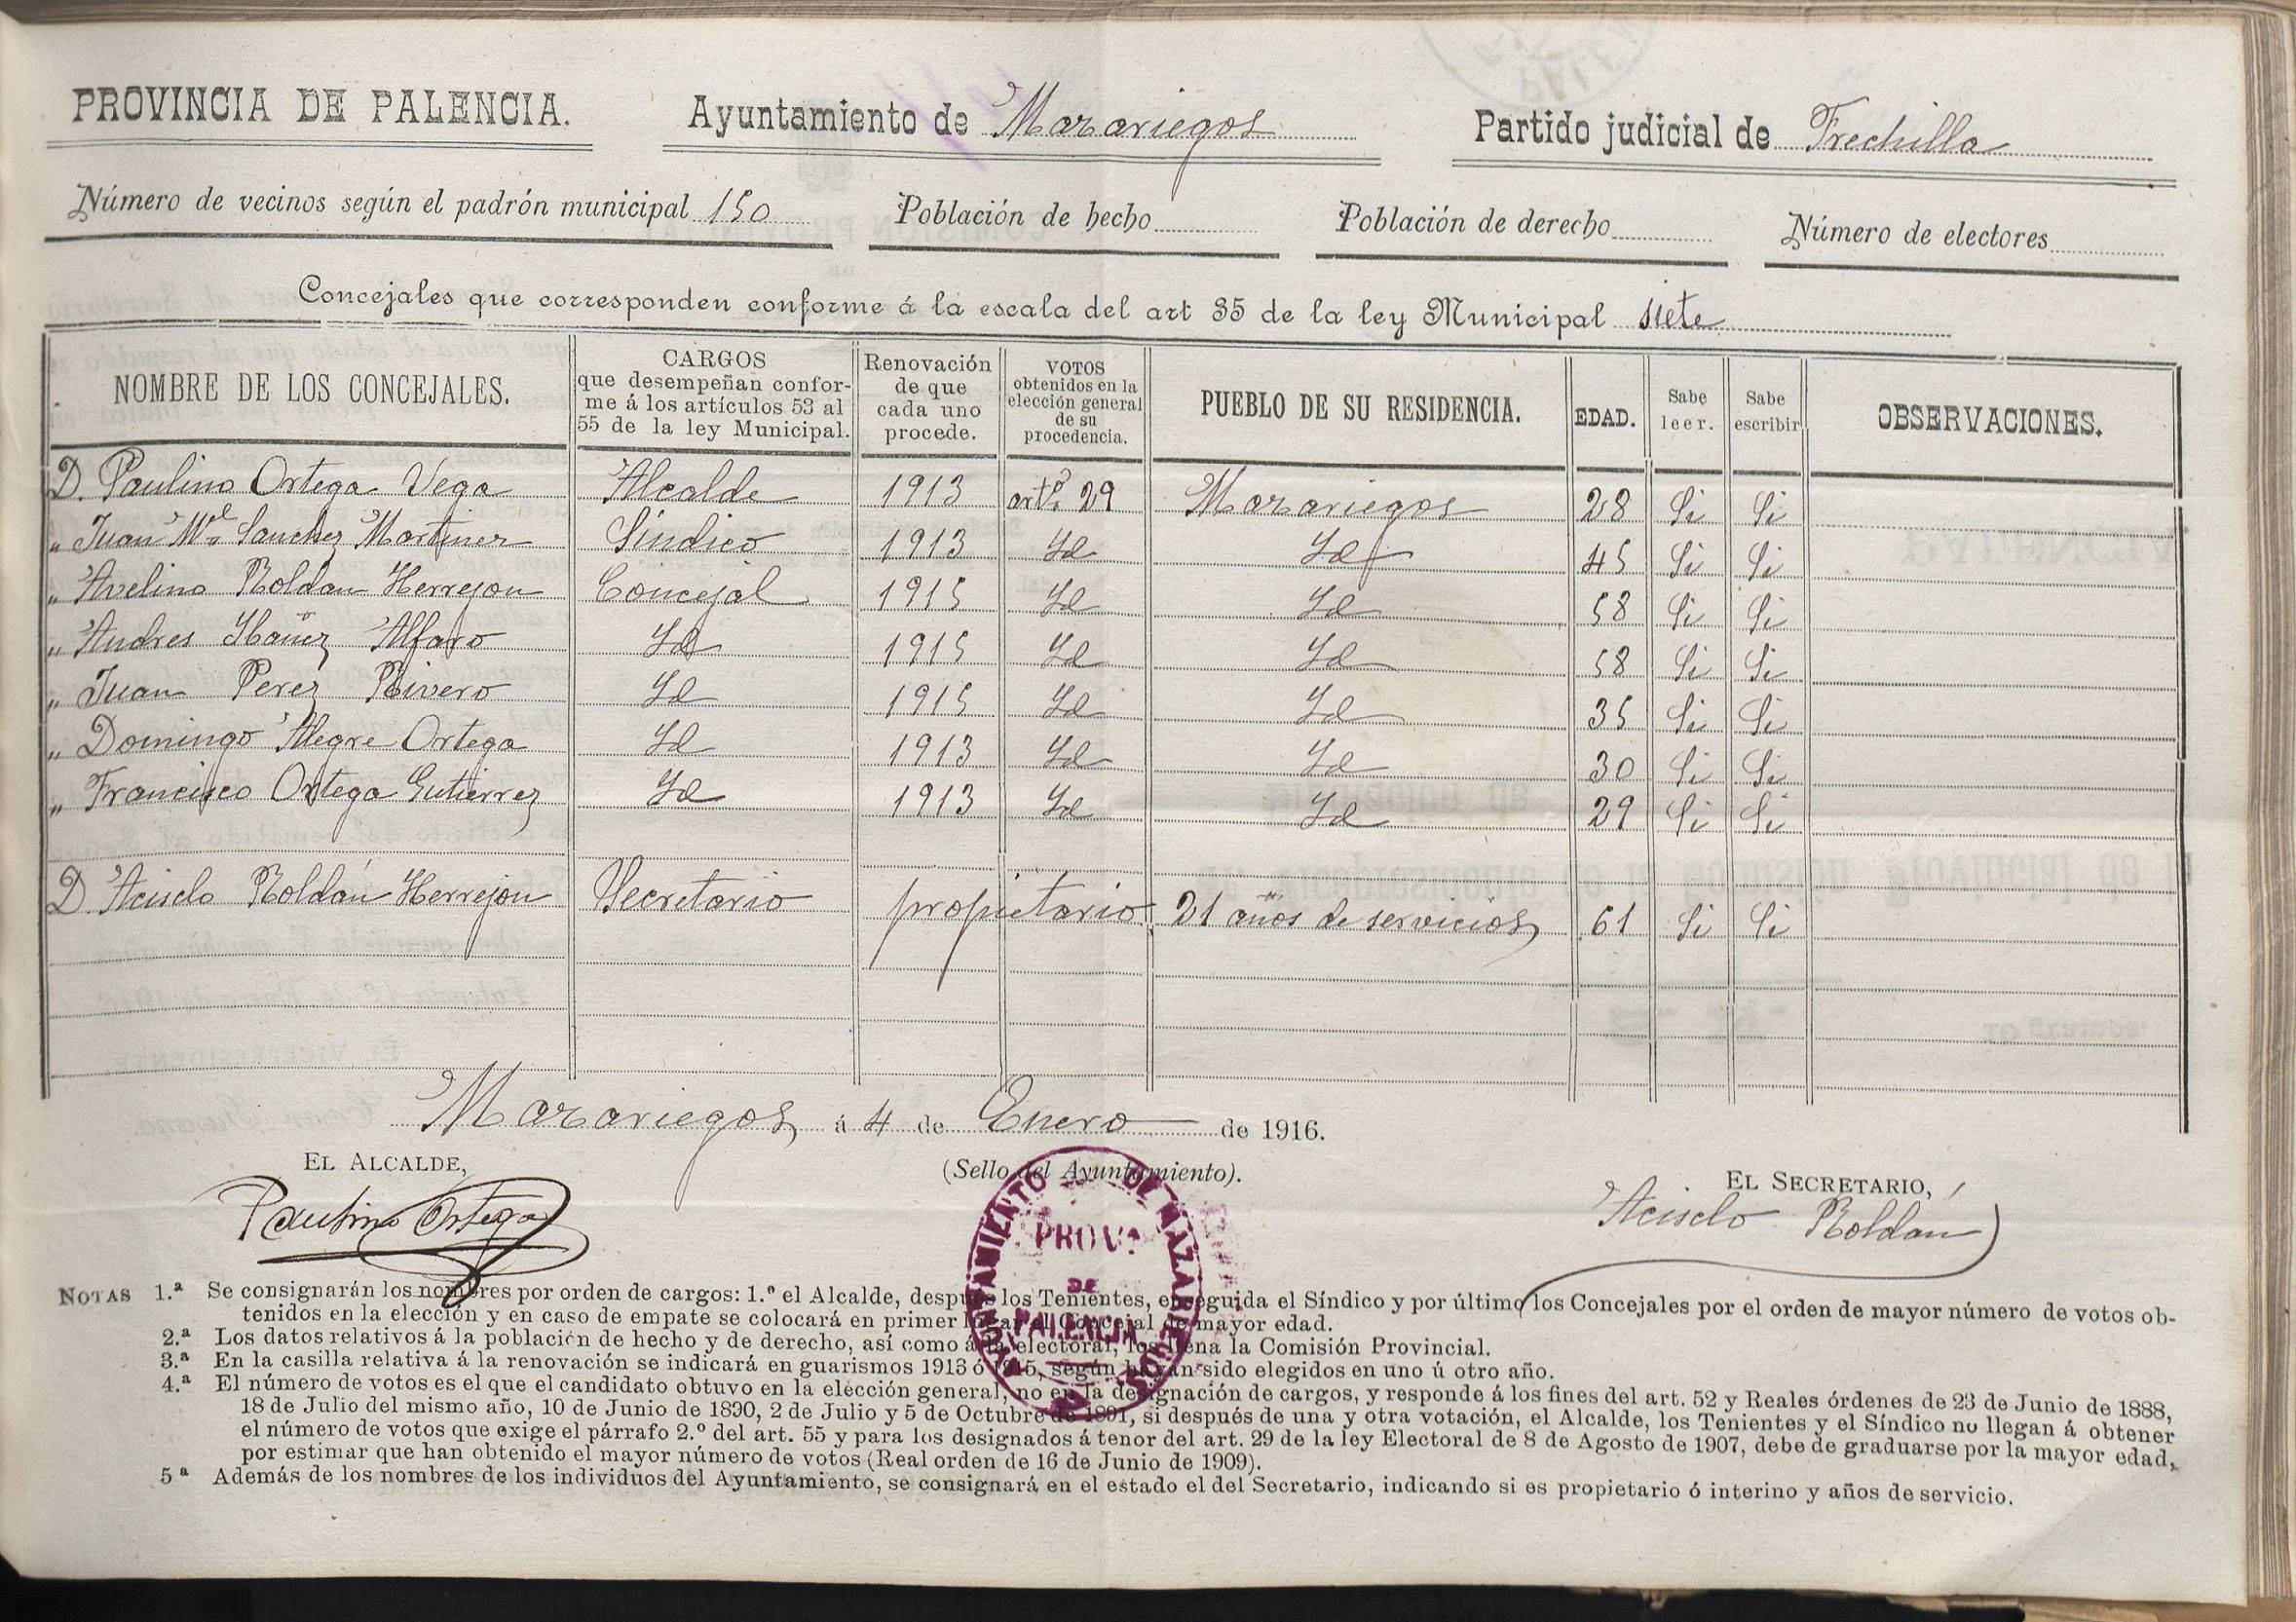 PROVINCIA DE PALENCIA. Ayuntamiento de Mazariegos Partido judicial de Frechilla
Número de vecinos según el padrón municipal 150 Población de hecho Población de derecho Número de electores
Concejales que corresponden conforme á la escala del art 35 de la ley Municipal siete
NOMBRE DE LOS CONCEJALES. CARGOS que desempeñan conforme á los artículos 53 al 55 de la ley Municipal. Renovación de que cada uno procede. VOTOS obtenidos en la elección general de su procedencia. PUEBLO DE SU RESIDENCIA. EDAD. Sabe leer. Sabe escribir OBSERVACIONES.
D. Paulino Ortega Vega Alcalde 1913 artº 29 Mazariegos 28 Si Si
„ Juan Mel Sanchez Martinez Síndico 1913 Id Id 45 Si Si
„ Avelino Roldan Herrejon Concejal 1915 Id Id 58 Si Si
„ Andres Ibañez Alfaro Id 1915 Id Id 58 Si Si
„ Juan Perez Rivero Id 1915 Id Id 35 Si Si
„ Domingo Alegre Ortega Id 1913 Id Id 30 Si Si
„ Francisco Ortega Gutierrez Id 1913 Id Id 29 Si Si
D. Acisclo Roldán Herrejon Secretario propietario 21 años de servicios 61 Si Si
Mazariegos á 4 de Enero de 1916.
EL ALCALDE, (Sello del Ayuntamiento). EL SECRETARIO,
Paulino Ortega Acisclo Roldan
AYUNTAMIENTO DE MAZARIEGOS
PROVª
DE
PALENCIA
NOTAS 1.ª Se consignarán los nombres por orden de cargos: 1.º el Alcalde, después los Tenientes, enseguida el Síndico y por último los Concejales por el orden de mayor número de votos ob-
tenidos en la elección y en caso de empate se colocará en primer lugar el Concejal de mayor edad.
2.ª Los datos relativos á la población de hecho y de derecho, así como á la electoral, los llena la Comisión Provincial.
3.ª En la casilla relativa á la renovación se indicará en guarismos 1913 ó 1915, según hayan sido elegidos en uno ú otro año.
4.ª El número de votos es el que el candidato obtuvo en la elección general, no en la designación de cargos, y responde á los fines del art. 52 y Reales órdenes de 23 de Junio de 1888,
18 de Julio del mismo año, 10 de Junio de 1890, 2 de Julio y 5 de Octubre de 1891, si después de una y otra votación, el Alcalde, los Tenientes y el Síndico no llegan á obtener
el número de votos que exige el párrafo 2.º del art. 55 y para los designados á tenor del art. 29 de la ley Electoral de 8 de Agosto de 1907, debe de graduarse por la mayor edad,
por estimar que han obtenido el mayor número de votos (Real orden de 16 de Junio de 1909).
5ª Además de los nombres de los individuos del Ayuntamiento, se consignará en el estado el del Secretario, indicando si es propietario ó interino y años de servicio.